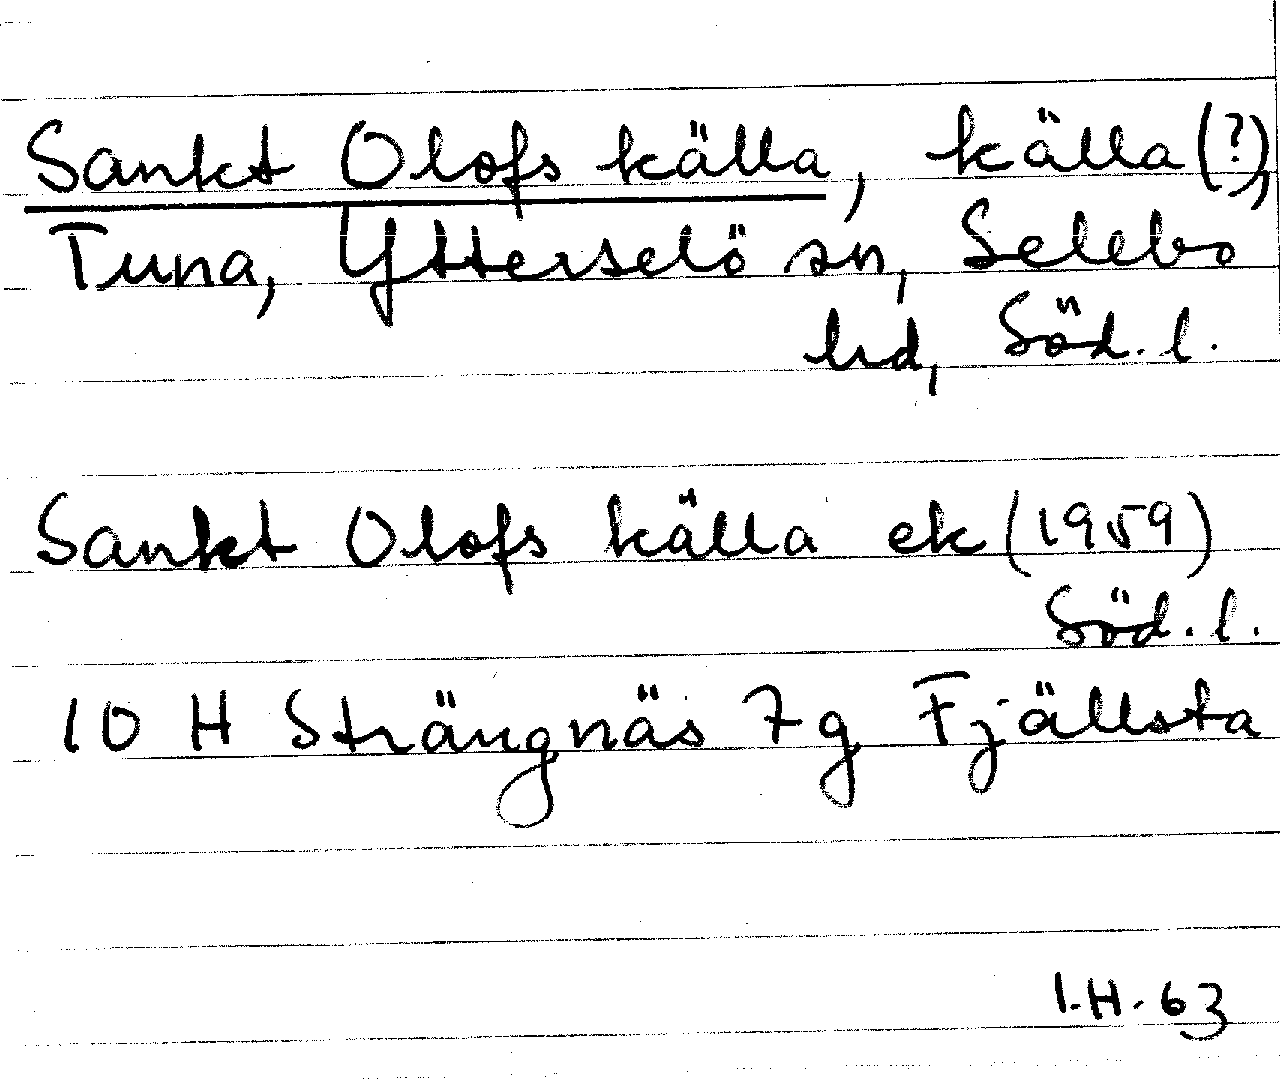 Sankt Olofs källa, källa(?),
Tuna, Ytterselö sn, Selebo
hd, Söd. l.
Sankt Olofs källa ek (1959)
Söd. l.
10 H Strängnäs 7g Fjällsta
I.H. 63